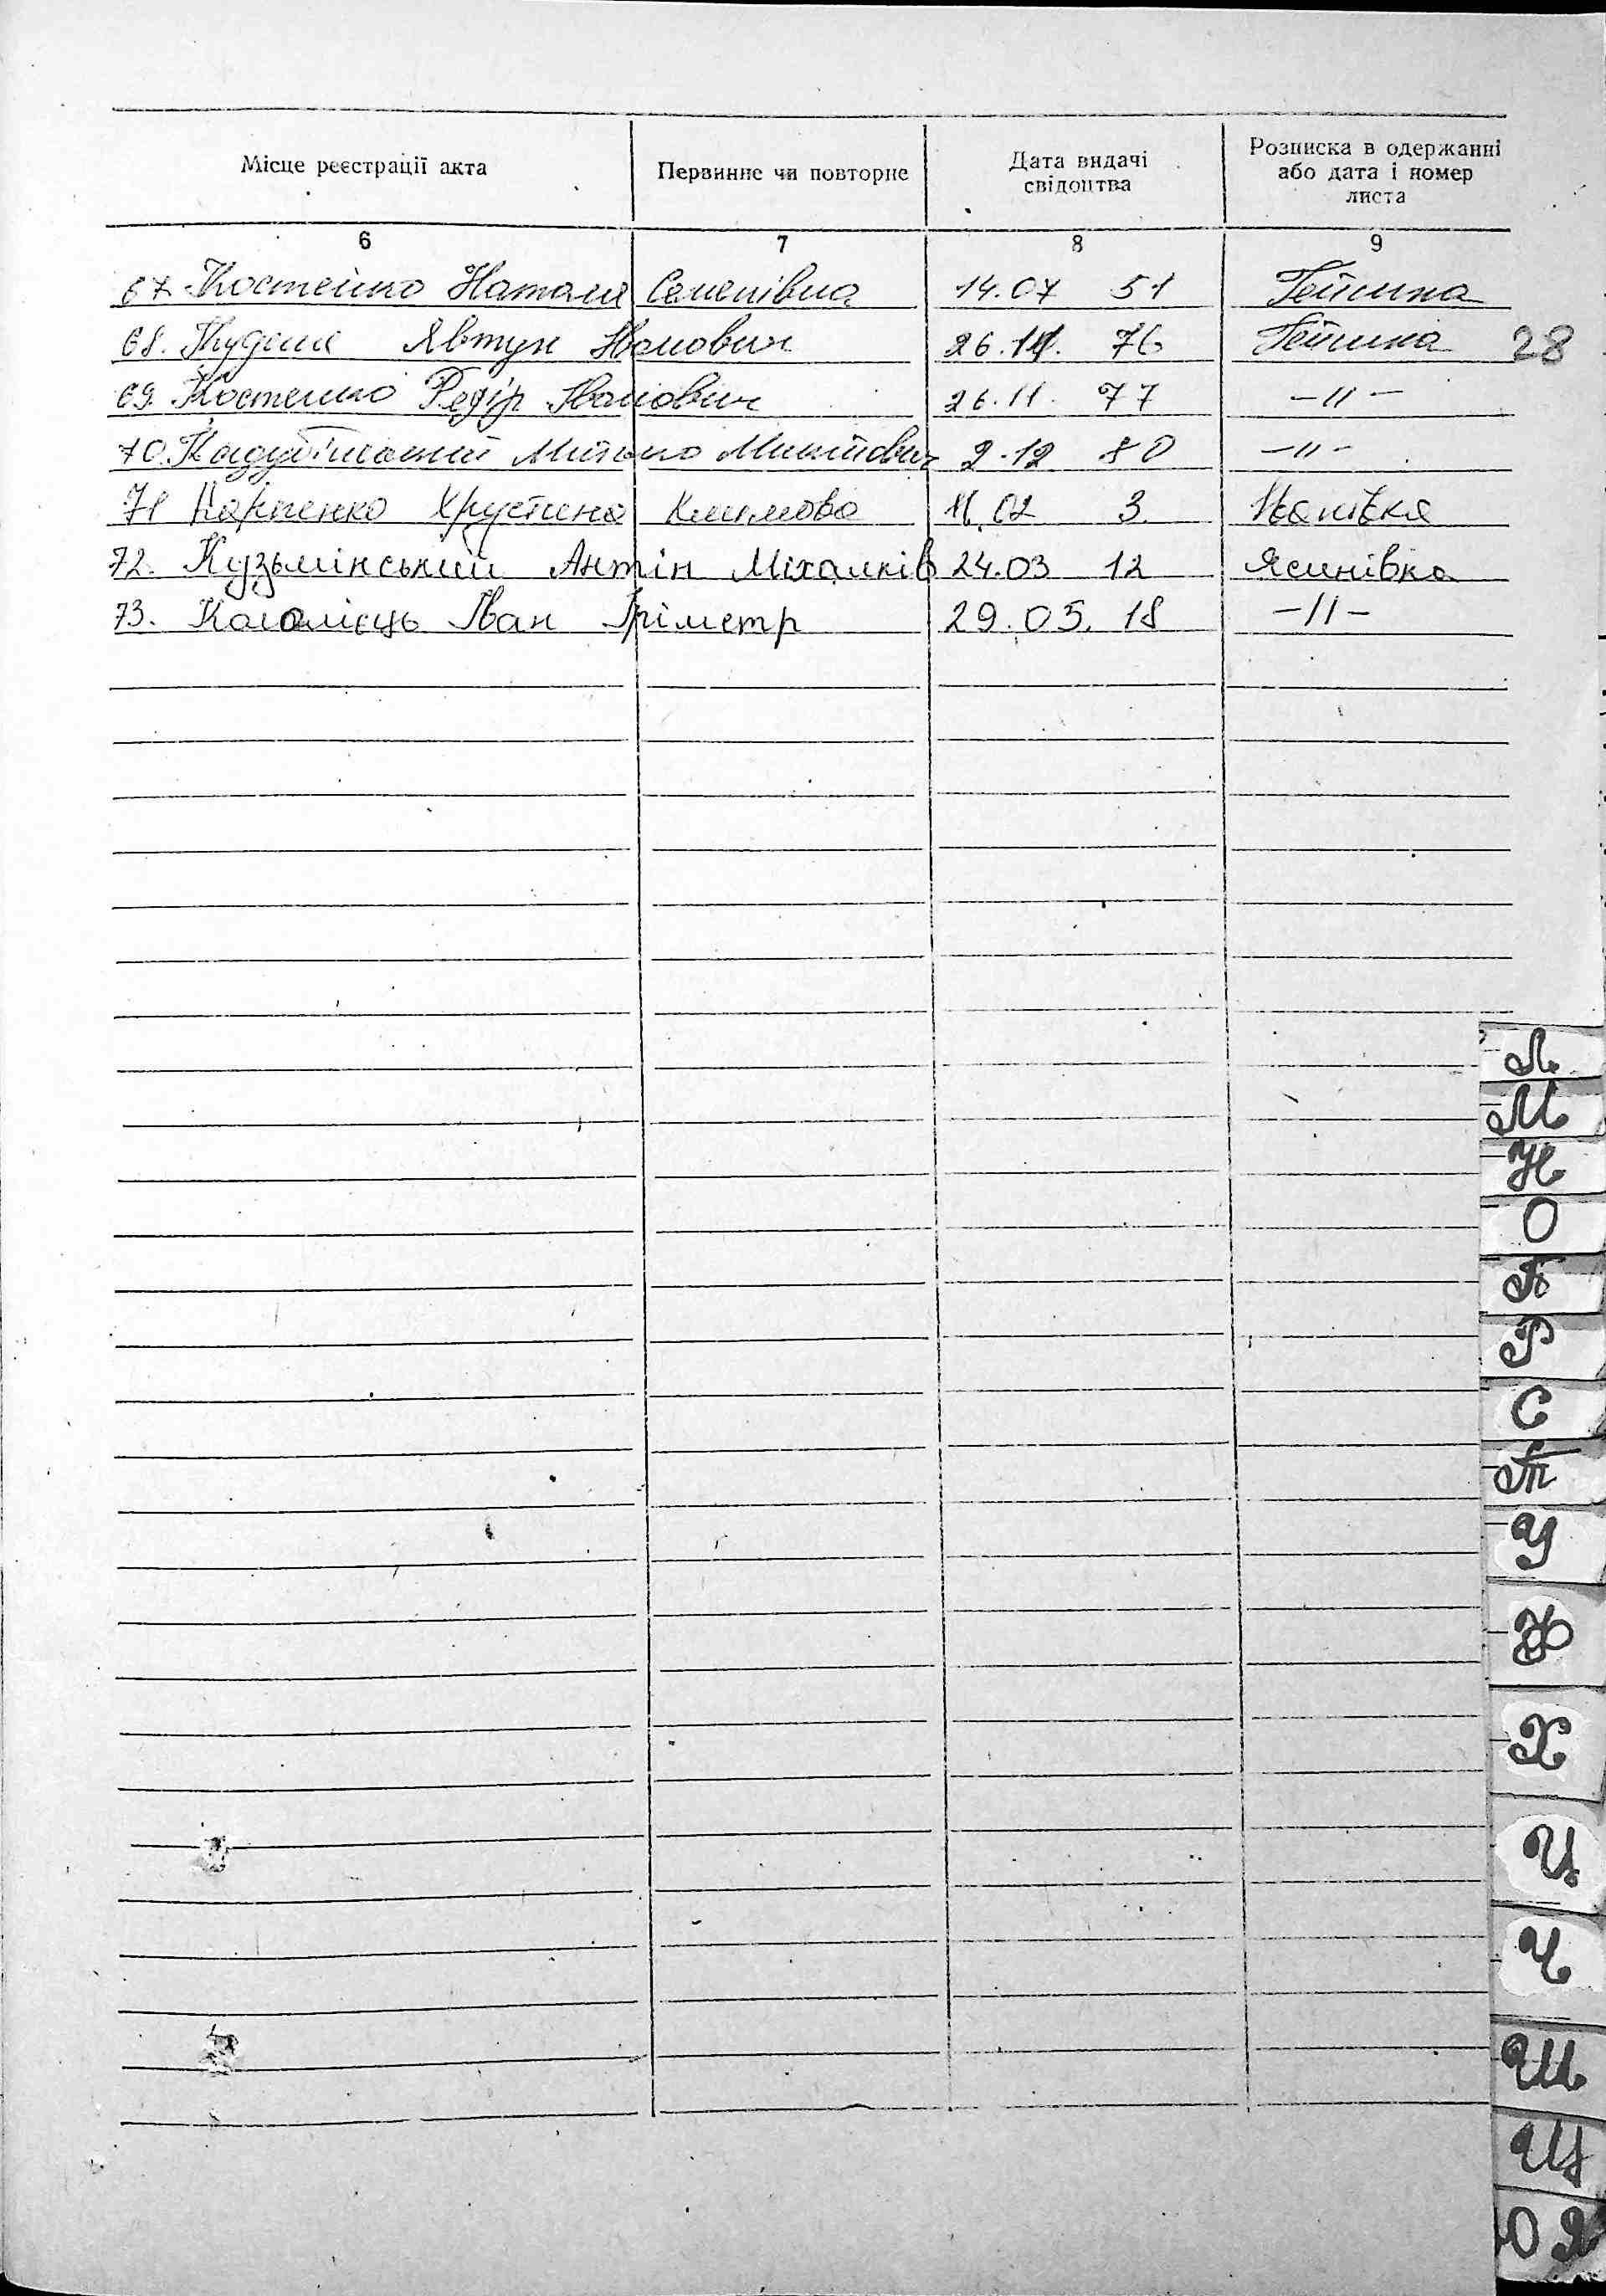 Місце реєстрації акта
Первинне чи повторне
Дата видачі
свідоцтва
Розписка в одержанні
або дата і номер
листа
6 7 8 9
67. Костенко Наталя Семенівна 14.07 51
68. Явтух Іванович 26.11. 76 28
69. Костенко Федір Іванович 26.11. 77 —//—
70. 2.12 80 —//—
71 Карпенко Хрустина Климова 11.02 3. Іванівка
72. Кузьмінський Антін Міхалків 24.03 12 Ясинівка
73. Коломієць Іван 29.05. 18 —//—
Л
М
Н
О
П
Р
С
Т
У
Ф
Х
Ц
Ч
Ш
Щ
Ю Я